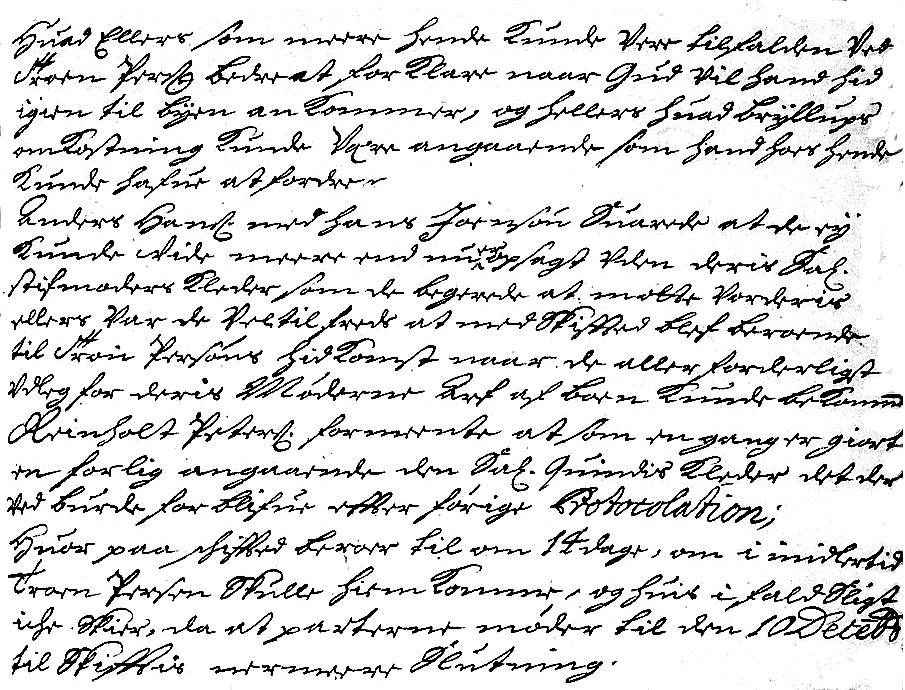 Huad Ellers som meere hende Kunde Vere tilfalden Ved
Troen Pers: bedre at forklare naar Gud vil hand hid
igien til byen an Kommer, og hellers huad bryllups
omKostning Kunde Være angaaende som hand hoes hende
Kunde hafue at fordre
Anders Hans: med hans Joensøn Suarede at de ey
Kunde vide meere end nu er opsagt Uden deris Sal.
stifmoders Kleder som de begerede at motte Vorderis
ellers Var de Veltilfreds at med Skifted blef beroende
til Troen Persøns hidKomst naar de allerforderligst
Udleg for deris Møderne Arf af boen Kunde beKomme
Reinholt Peters: formeente at som en gang er giort
en forlig angaaende den Sal. Quindis Kleder det der
ved burde forblifue effter forige Protocolation;
Huor paa schifted beroer til om 14 dage, om i midlertid
Troen Persen Skulle hiem Komme, og huis i fald Sligt
iche Skier, da at parterne møder til den 10 Decebr
til Skifftis nermeere Slutning.